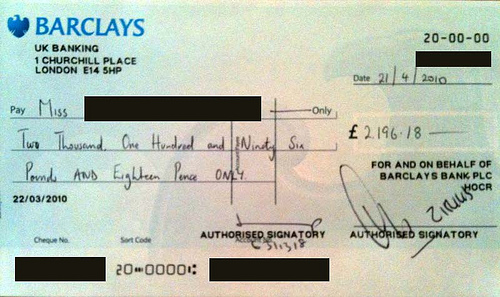 BARCLAYS
20-00-00
UK BANKING
1 CHURCHILL PLACE
LONDON E14 5HP
Date 21/4/2010
Pay Miss Only
Two Thousand, One Hundred and Ninety Six
£ 2,196.18
Pounds AND Eighteen Pence ONLY.
FOR AND ON BEHALF OF
BARCLAYS BANK PLC
HOCR
22/03/2010
AUTHORISED SIGNATORY
AUTHORISED SIGNATORY
Cheque No.
Sort Code
20-0000